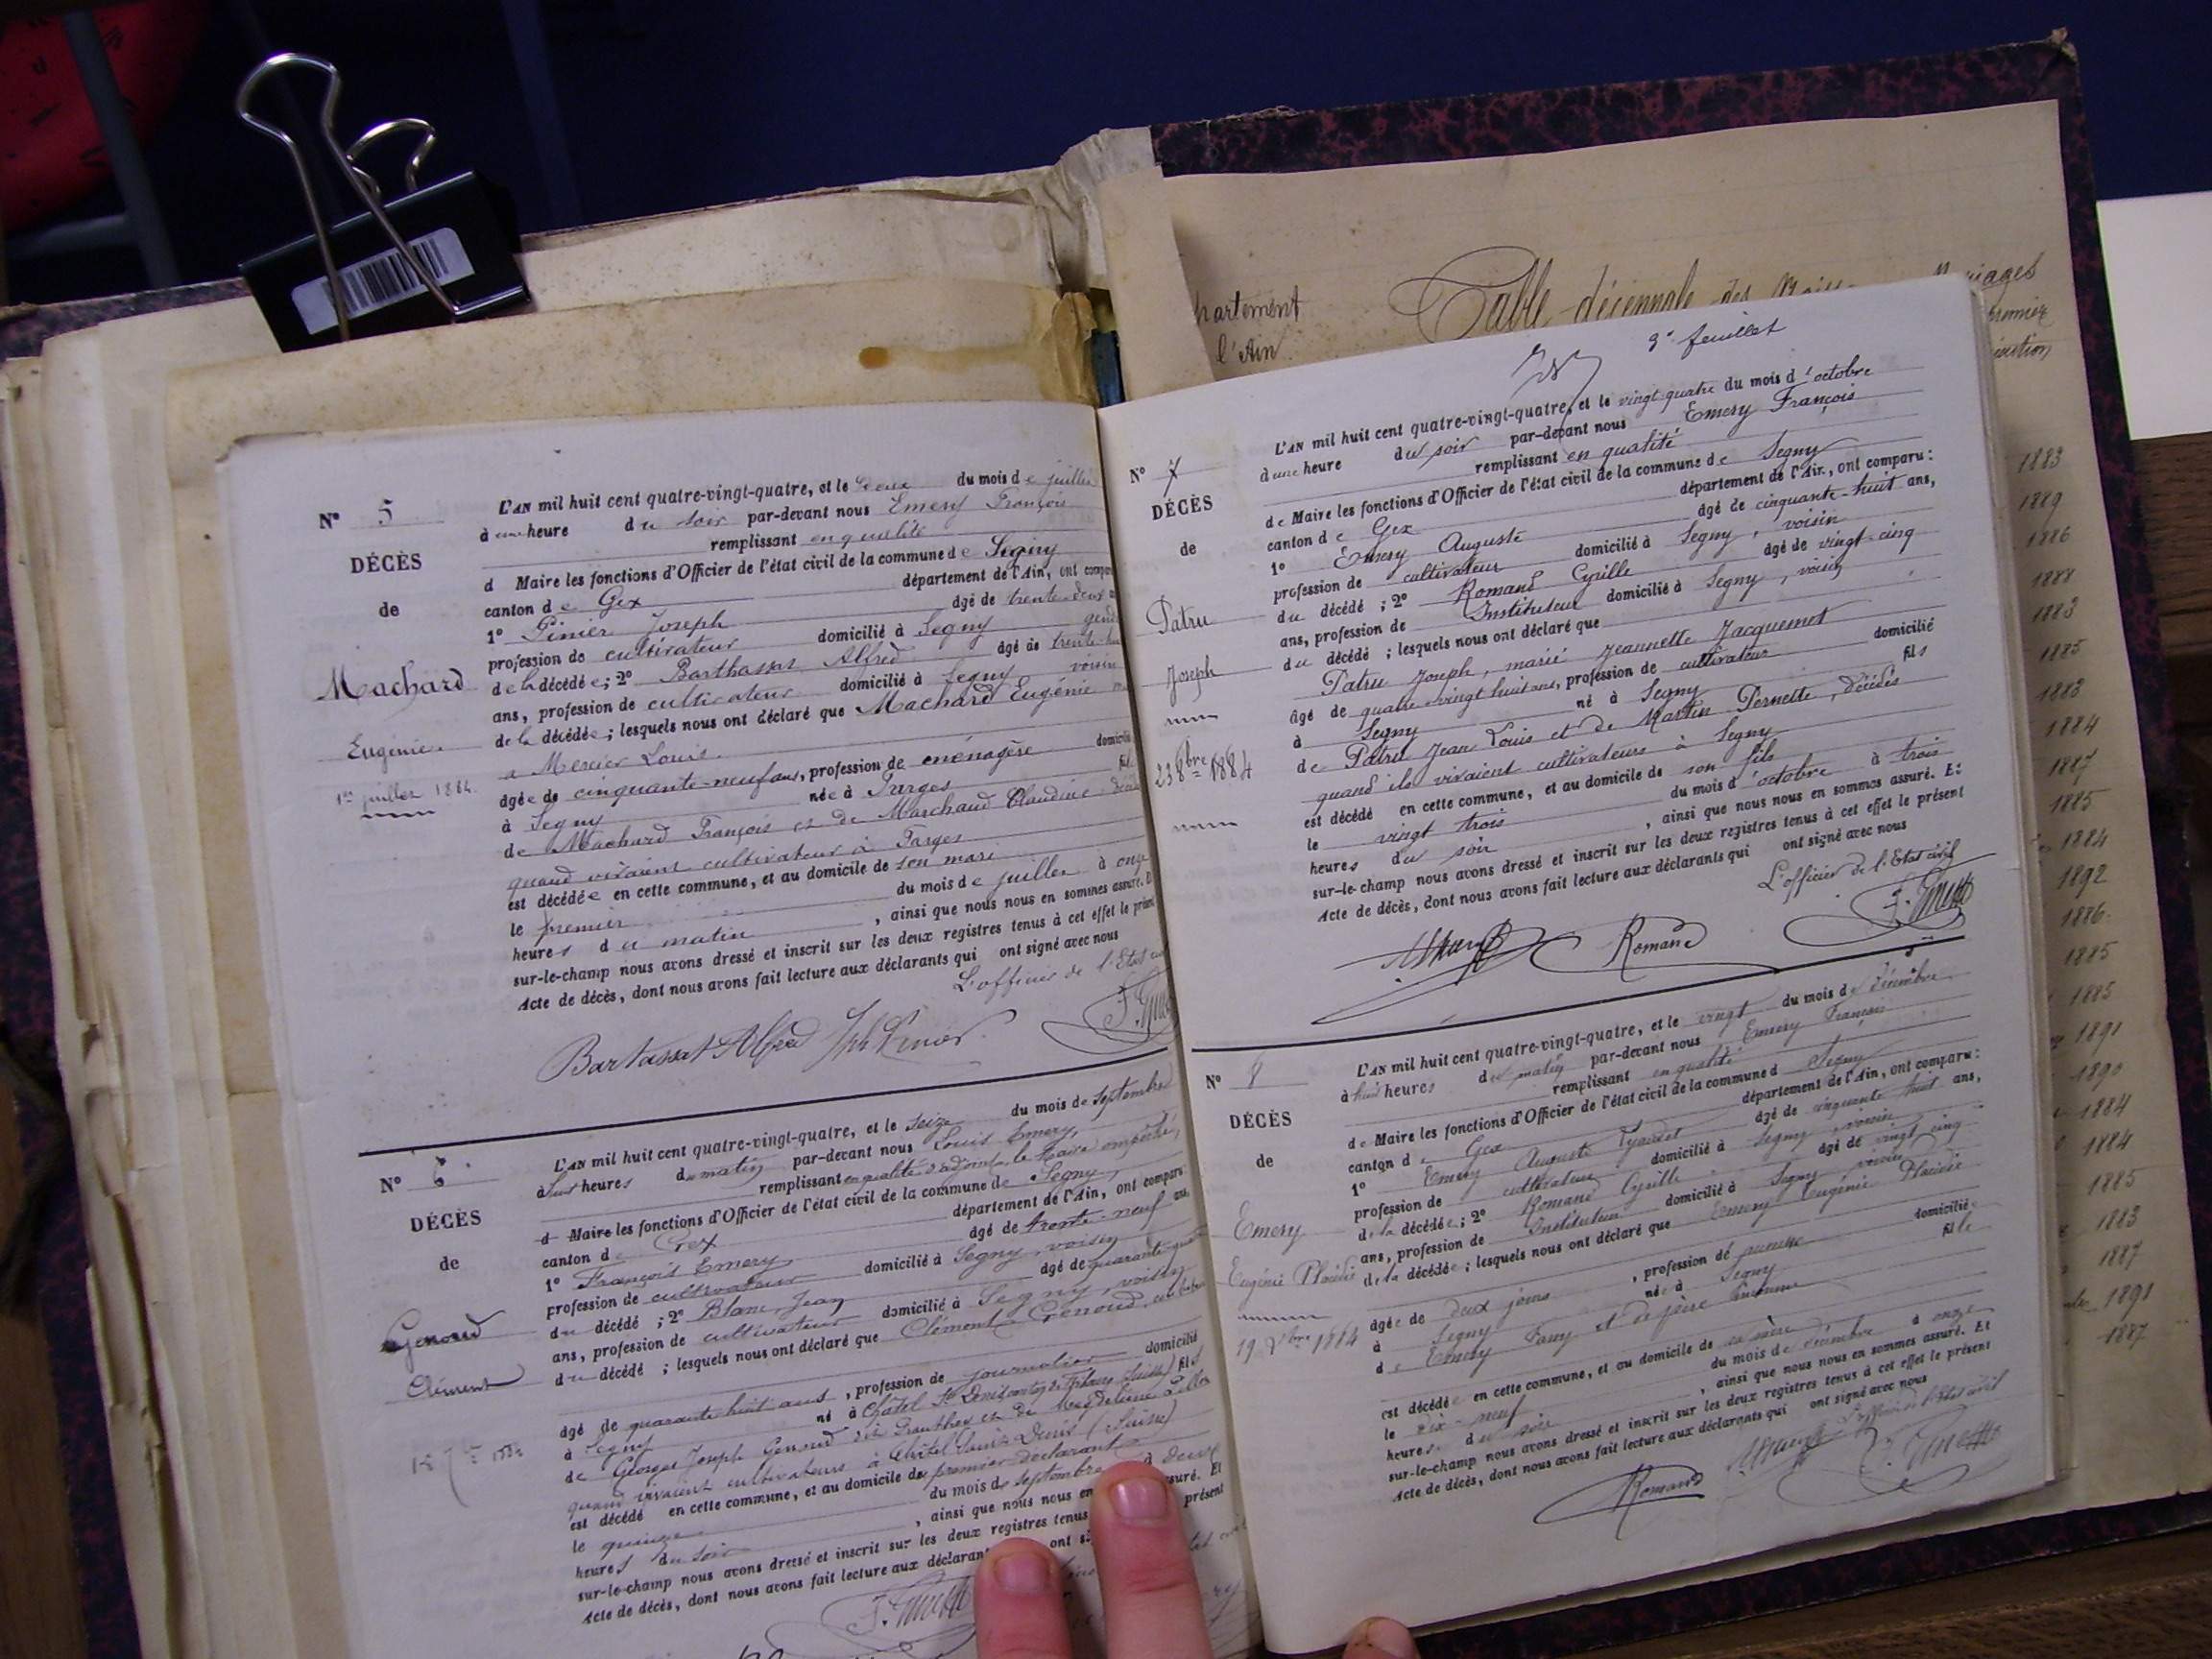 N° 5
DÉCÈS
de
Machard
Eugénie
1er juillet 1884.
L'AN mil huit cent quatre-vingt-quatre, et le deux du mois de juillet
à une heure du soir par-devant nous Emery François
remplissant en qualité
d Maire les fonctions d'Officier de l'état civil de la commune de Segny
canton de Gex département de l'Ain, ont compa
1° Pinier Joseph âgé de trente-deux
profession de cultivateur domicilié à Segny gendre
de la décédée; 2° Barthassat Alfred âgé de trente-
ans, profession de cultivateur domicilié à Segny voisin
de la décédée; lesquels nous ont déclaré que Machard Eugénie
a Mercier Louis.
âgée de cinquante-neuf ans, profession de ménagère domicili
à Segny née à Farges fil
de Machard François et de Marchand Claudine
quand vivaient cultivateur à Farges
est décédée en cette commune, et au domicile de son mari
le premier du mois de juillet à onze
heures du matin, ainsi que nous nous en sommes assuré.
sur-le-champ nous avons dressé et inscrit sur les deux registres tenus à cet effet le présent
Acte de décès, dont nous avons fait lecture aux déclarants qui ont signé avec nous
L'officier de l'Etat civ
Bartassat Alfred Jph Pinier
N° 6
DÉCÈS
de
Genoud
Clément
L'AN mil huit cent quatre-vingt-quatre, et le seize du mois de septembre
à huit heures du matin par-devant nous Louis Emery,
remplissant en qualité d'adjoint, le Maire empêché,
d Maire les fonctions d'Officier de l'état civil de la commune de Segny,
canton de Gex département de l'Ain, ont comparu
1° François Emery âgé de trente-neuf ans,
profession de cultivateur domicilié à Segny, voisin
du décédé; 2° Blanc Jean âgé de quarante
ans, profession de cultivateur domicilié à Segny, voisin
du décédé; lesquels nous ont déclaré que Clément Genoud,
âgé de quarante huit ans, profession de journalier domicilié
à Segny né à Châtel St Denis fils
de Georges Joseph Genoud et de Magdeleine
quand vivaient cultivateurs à Châtel Saint Denis (Suisse)
est décédé en cette commune, et au domicile du premier déclarant
le quinze du mois de septembre à deux
heures du soir, ainsi que nous nous en ssuré. Et
sur-le-champ nous avons dressé et inscrit sur les deux registres tenus présent
Acte de décès, dont nous avons fait lecture aux déclarant ont
partement
l'Ain
Table décennale des
riages
premier
3e feuillet
N° 7
DÉCÈS
de
Patru
Joseph
23 8bre 1884
L'AN mil huit cent quatre-vingt-quatre, et le vingt-quatre du mois d'octobre
à une heure du soir par-devant nous Emery François
remplissant en qualité
de Maire les fonctions d'Officier de l'état civil de la commune de Segny
canton de Gex département de l'Ain, ont comparu:
1° Emery Auguste âgé de cinquante-huit ans,
profession de cultivateur domicilié à Segny, voisin
du décédé; 2° Romand Cyrille âgé de vingt-cinq
ans, profession de Instituteur domicilié à Segny, voisin
du décédé; lesquels nous ont déclaré que
Patru Joseph, marié Jeannette Jacquemet
âgé de quatre-vingt huit ans, profession de cultivateur domicilié
à Segny né à Segny fils
de Patru Jean Louis et de Martin Pernette, décédés
quand ils vivaient cultivateurs à Segny
est décédé en cette commune, et au domicile de son fils
le vingt trois du mois d'octobre à trois
heures du soir, ainsi que nous nous en sommes assuré. Et
sur-le-champ nous avons dressé et inscrit sur les deux registres tenus à cet effet le présent
Acte de décès, dont nous avons fait lecture aux déclarants qui ont signé avec nous
L'officier de l'Etat civil
Romand
N° 8
DÉCÈS
de
Emery
Eugénie Placidie
19 Xbre 1884
L'AN mil huit cent quatre-vingt-quatre, et le vingt du mois de décembre
à huit heures du matin par-devant nous Emery François
remplissant en qualité
de Maire les fonctions d'Officier de l'état civil de la commune d Segny
canton de Gex département de l'Ain, ont comparu:
1° Emery Auguste âgé de cinquante huit ans,
profession de cultivateur domicilié à Segny, voisin
de la décédée; 2° Romand Cyrille âgé de vingt cinq
ans, profession de Instituteur domicilié à Segny voisin
de la décédée; lesquels nous ont déclaré que Emery Eugénie Placidie
âgée de deux jours, profession de domicilié
à Segny née à Segny fille
de Emery Fany et de père inconnu
est décédée en cette commune, et au domicile de sa mère
le dix-neuf du mois de décembre à onze
heures du soir, ainsi que nous nous en sommes assuré. Et
sur-le-champ nous avons dressé et inscrit sur les deux registres tenus à cet effet le présent
Acte de décès, dont nous avons fait lecture aux déclarants qui ont signé avec nous
L'officier de l'Etat civil
Romand
1883
1889
1886
1888
1883
1885
1883
1884
1887
1885
1884
1892
1886
1885
1885
1891
1890
1884
1884
1885
1883
1887
1891
1887